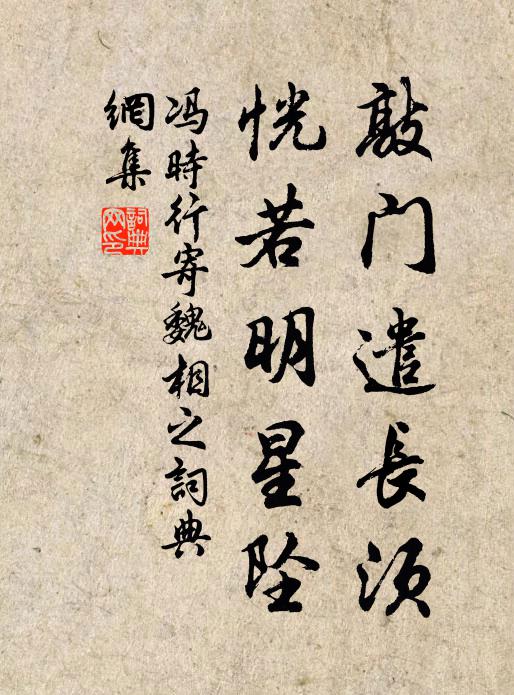 敲门遣長须
恍若明星坠
冯時行寄魏相之詞典
網集
詞典
网印